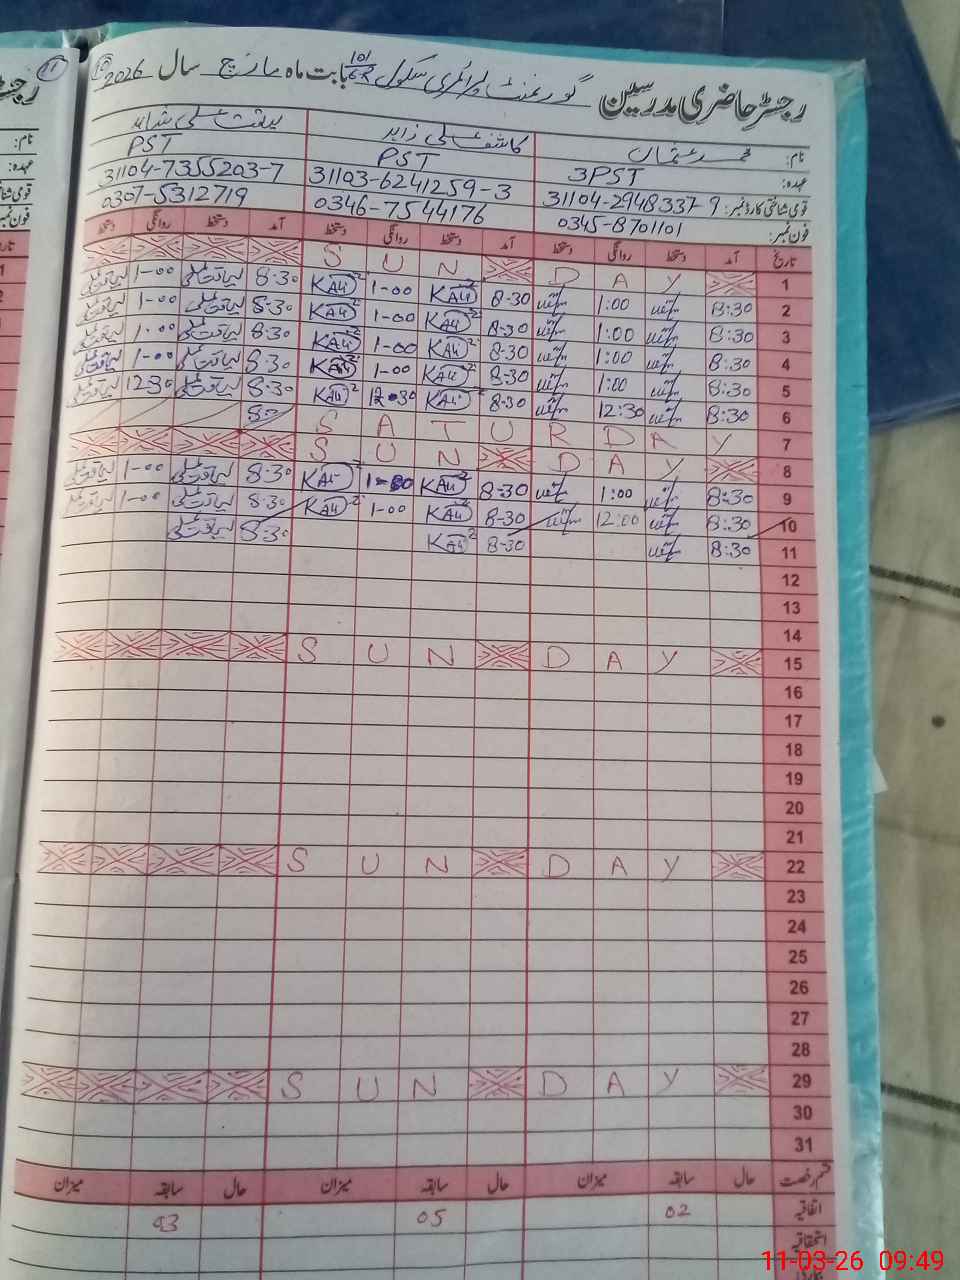 رجسٹر حاضری مدرسین گورنمنٹ پرائمری سکول 101/6R بابت ماہ مارچ سال 2026
نام: محمد عثمان کاشف علی زاہد لیاقت علی شاہد
عہدہ: 3PST PST PST
قومی شناختی کارڈ نمبر: 31104-2948337-9 31103-6241259-3 31104-7355203-7
فون نمبر: 0345-8701101 0346-7544176 0307-5312719
تاریخ آمد دستخط روانگی دستخط آمد دستخط روانگی دستخط آمد دستخط روانگی دستخط
1 S U N D A Y
2 8:30 1:00 8-30 KAli 1-00 KAli 8-30 لیاقت علی 1-00 لیاقت علی
3 8:30 1:00 8-30 KAli 1-00 KAli 8-30 لیاقت علی 1-00 لیاقت علی
4 8:30 1:00 8-30 KAli 1-00 KAli 8-30 لیاقت علی 1-00 لیاقت علی
5 8:30 1:00 8-30 KAli 1-00 KAli 8-30 لیاقت علی 1-00 لیاقت علی
6 8:30 12:30 8-30 KAli 12-30 KAli 8-30 لیاقت علی 12-30 لیاقت علی
7 S A T U R D A Y
8 S U N D A Y
9 8:30 1:00 8-30 KAli 1-00 KAli 8-30 لیاقت علی 1-00 لیاقت علی
10 8:30 12:00 8-30 KAli 1-00 KAli 8-30 لیاقت علی 1-00 لیاقت علی
11 8:30 8-30 KAli 8-30 لیاقت علی
12
13
14
15 S U N D A Y
16
17
18
19
20
21
22 S U N D A Y
23
24
25
26
27
28
29 S U N D A Y
30
31
قسم رخصت حال سابقہ میزان حال سابقہ میزان حال سابقہ میزان
اتفاقیہ 02 05 03
استحقاقیہ
11-03-26 09:49